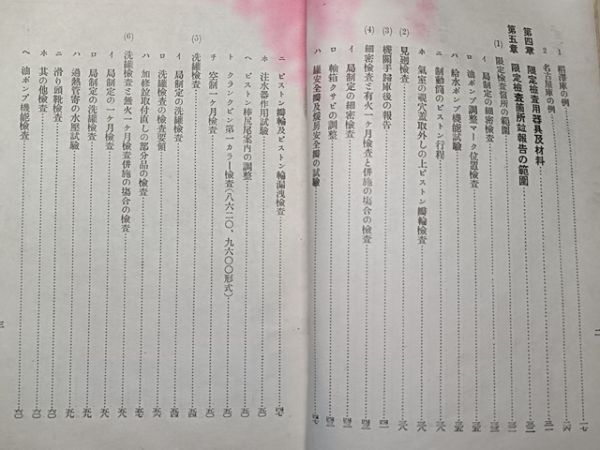 1 稲澤庫の例
2 名古屋庫の例
第四章 限定檢査用器具及材料
第五章 限定檢査箇所竝報告の範圍
(1) 限定檢査箇所の範圍
イ 局制定の細密檢査
ロ 油ポンプ調整マーク位置檢査
ハ 給水ポンプ機能試驗
ニ 制動筒のピストン行程
ホ 氣室の覗穴蓋取外しの上ピストン瓣輪檢査
(2) 見廻檢査
(3) 機關手歸庫後の報告
(4) 細密檢査と有火一ケ月檢査と併施の場合の檢査
イ 局制定の細密檢査
ロ 軸箱クサビの調整
ハ 罐安全瓣及煖房安全瓣の試驗
二
ニ ピストン瓣輪及ピストン輪漏洩檢査
ホ 注水器作用試驗
ヘ ピストン棒尻尾案内の調整
ト クランクピン第一カラー檢査(八六二〇、九六〇〇形式)
チ 空制一ケ月檢査
(5) 洗罐檢査
イ 局制定の洗罐檢査
ロ 洗罐檢査の檢査要領
ハ 加修竝取付直しの部分品の檢査
(6) 洗罐檢査と無火一ケ月檢査併施の場合の檢査
イ 局制定の一ケ月檢査
ロ 局制定の洗罐檢査
ハ 過熱管寄の水壓試驗
ニ 滑り頭靴檢査
ホ 其の他檢査
ヘ 油ポンプ機能檢査
三